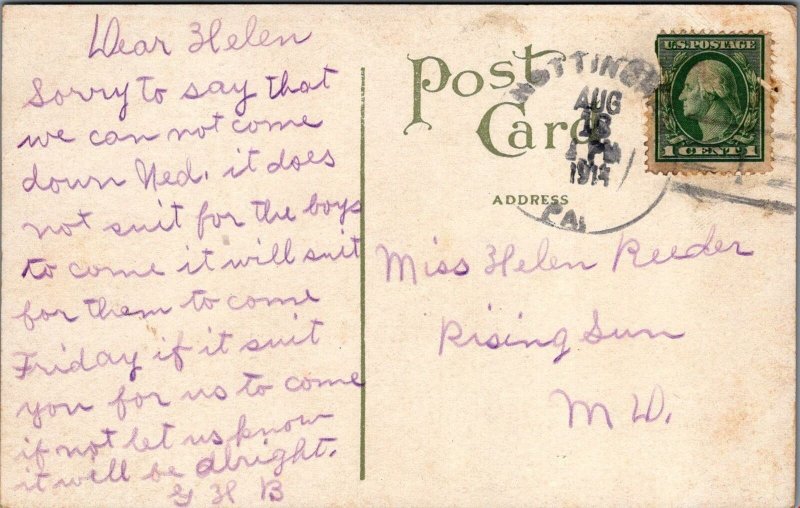 Dear Helen
Sorry to say that
we can not come
down Wed. it does
not suit for the boys
to come it will suit
for them to come
Friday if it suit
you for us to come
if not let us know
it will be alright.
G H B
Post
Card
ADDRESS
NOTTINGH
AUG
18
1 PM
1914
PA.
U.S. POSTAGE
1 CENT 1
Miss Helen Reeder
Rising Sun
M D.